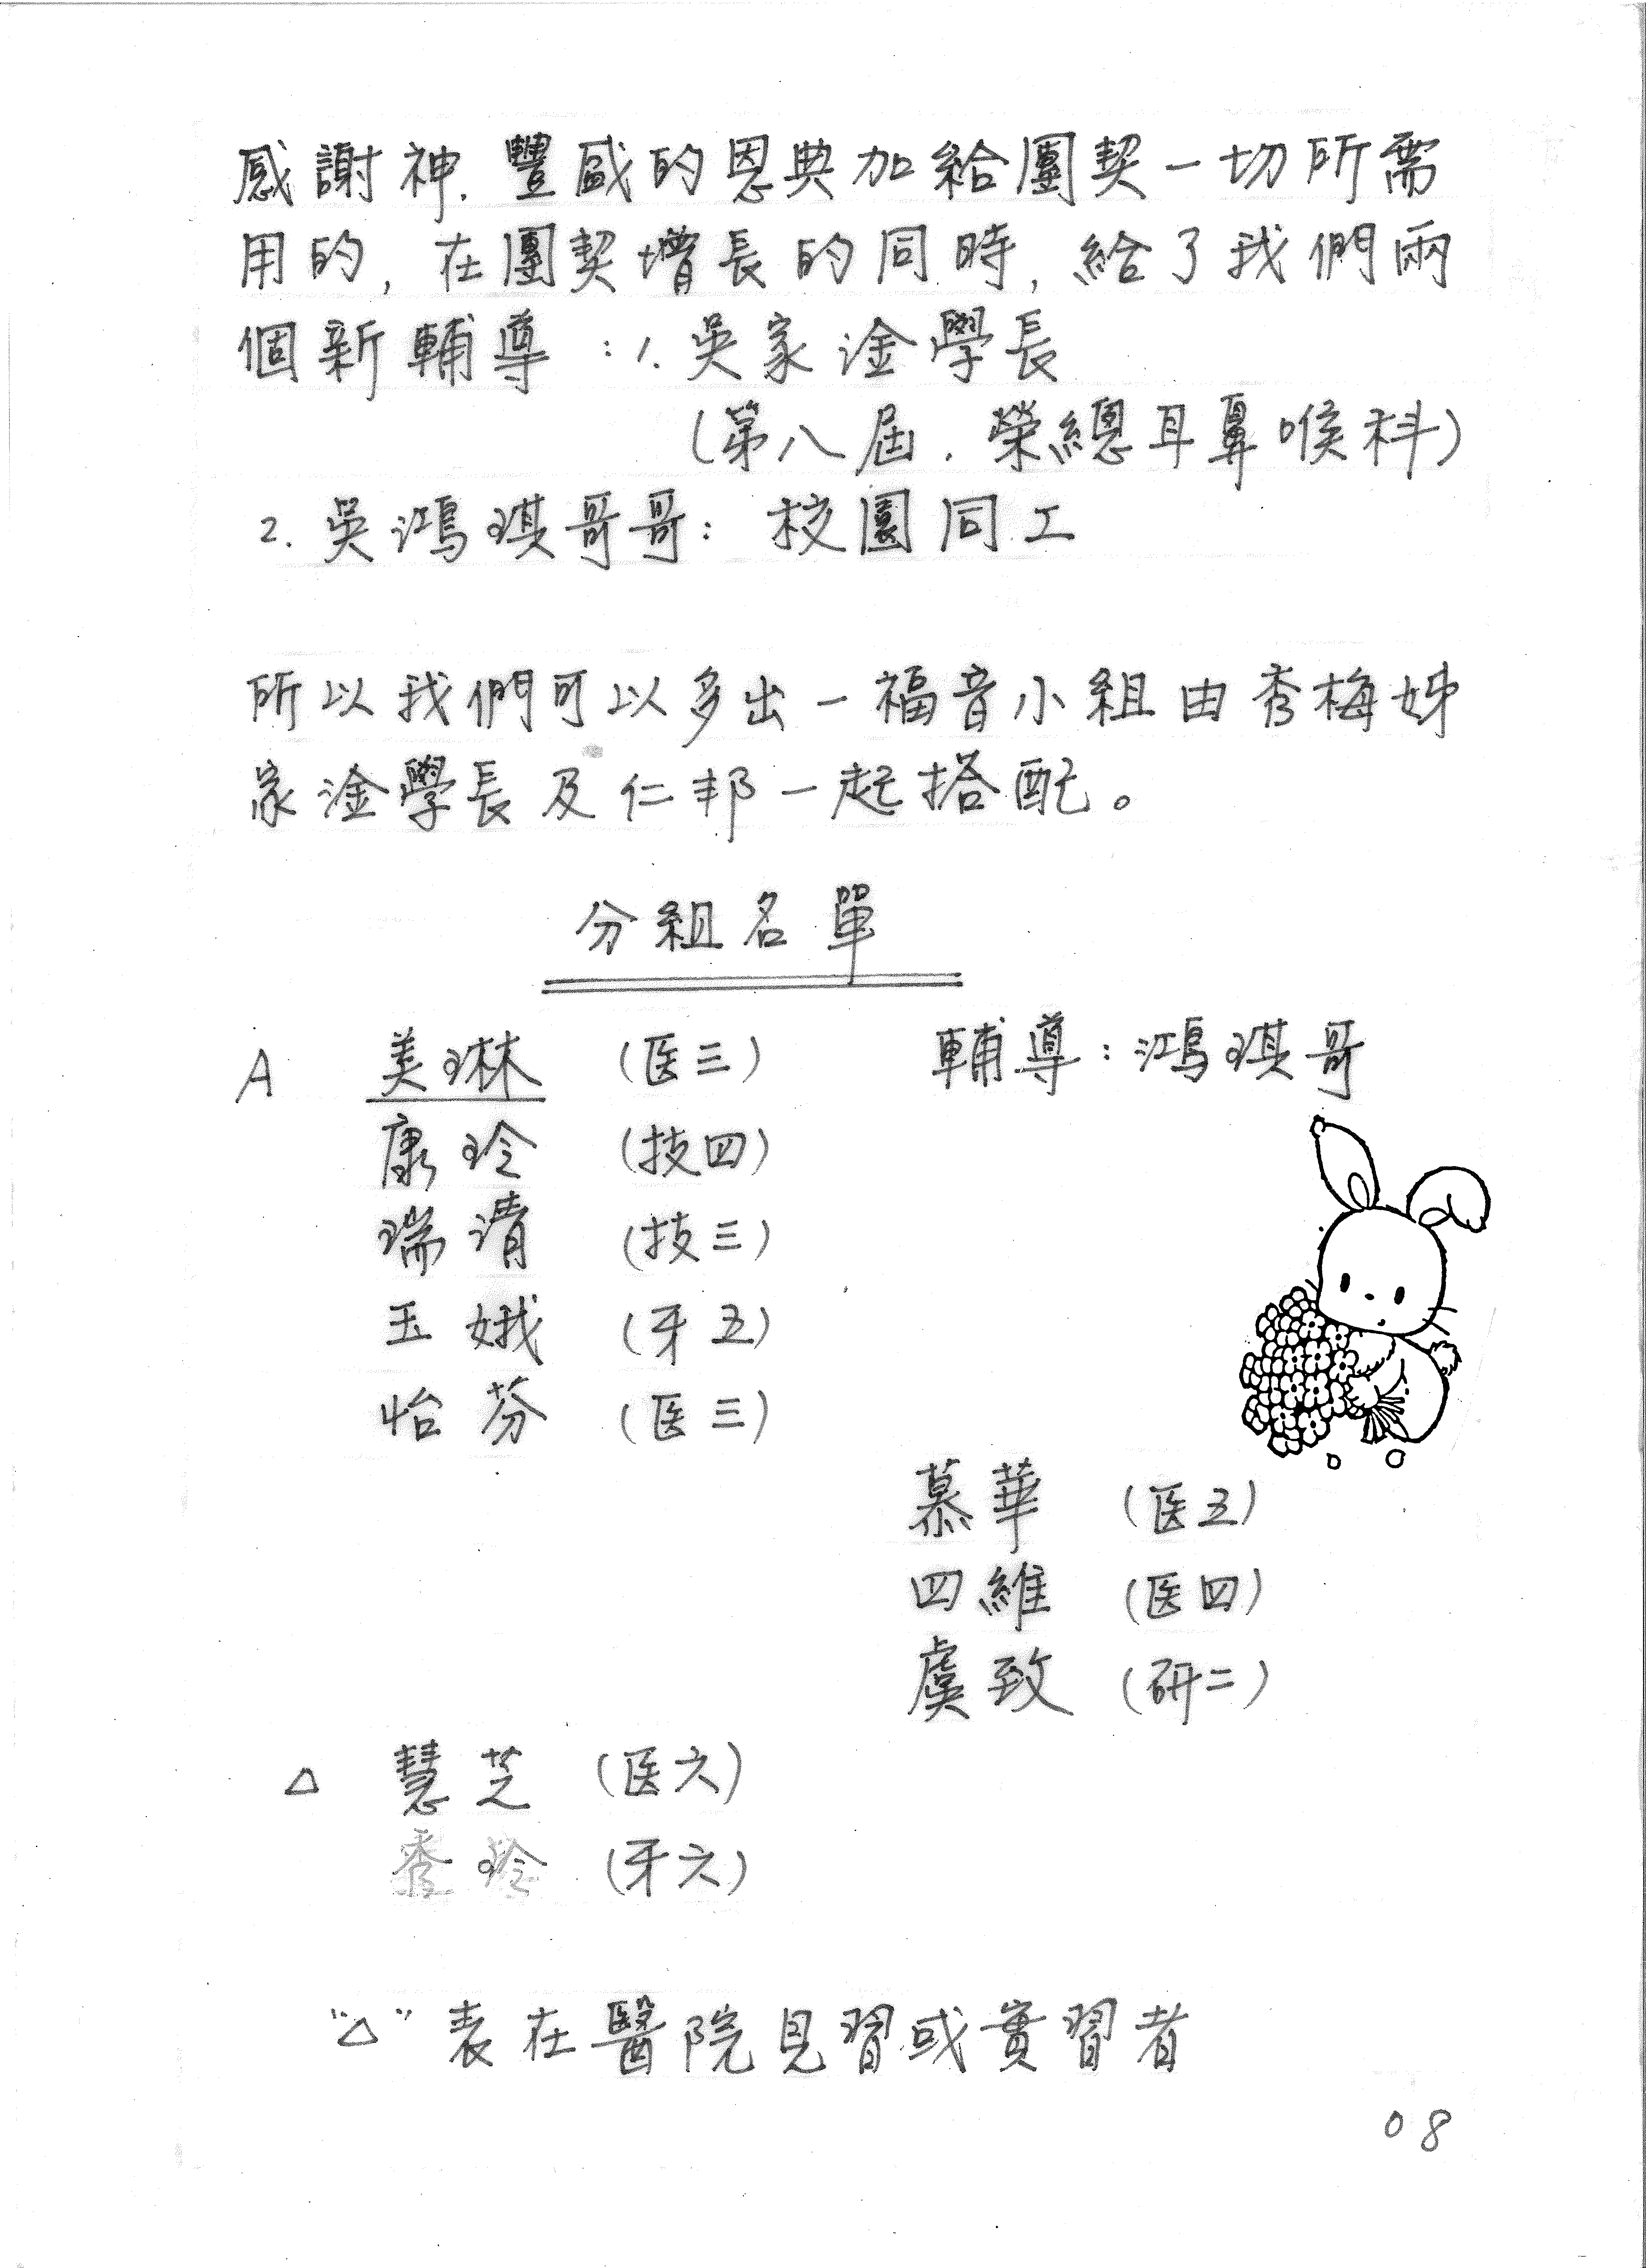 感謝神.豐盛的恩典加給團契一切所需
用的,在團契增長的同時,給了我們兩
個新輔導:1.吳家淦學長
(第八屆.榮總耳鼻喉科)
2.吳鴻琪哥哥:校園同工
所以我們可以多出一福音小組由秀梅姊
家淦學長及仁邦一起搭配。
分組名單
A 美琳 (医三) 輔導:鴻琪哥
康玲 (技四)
瑞清 (技三)
玉娥 (牙五)
怡芬 (医三)
慕華 (医五)
四維 (医四)
虞致 (研二)
△ 慧芝 (医六)
秀玲 (牙六)
"△"表在醫院見習或實習者
08